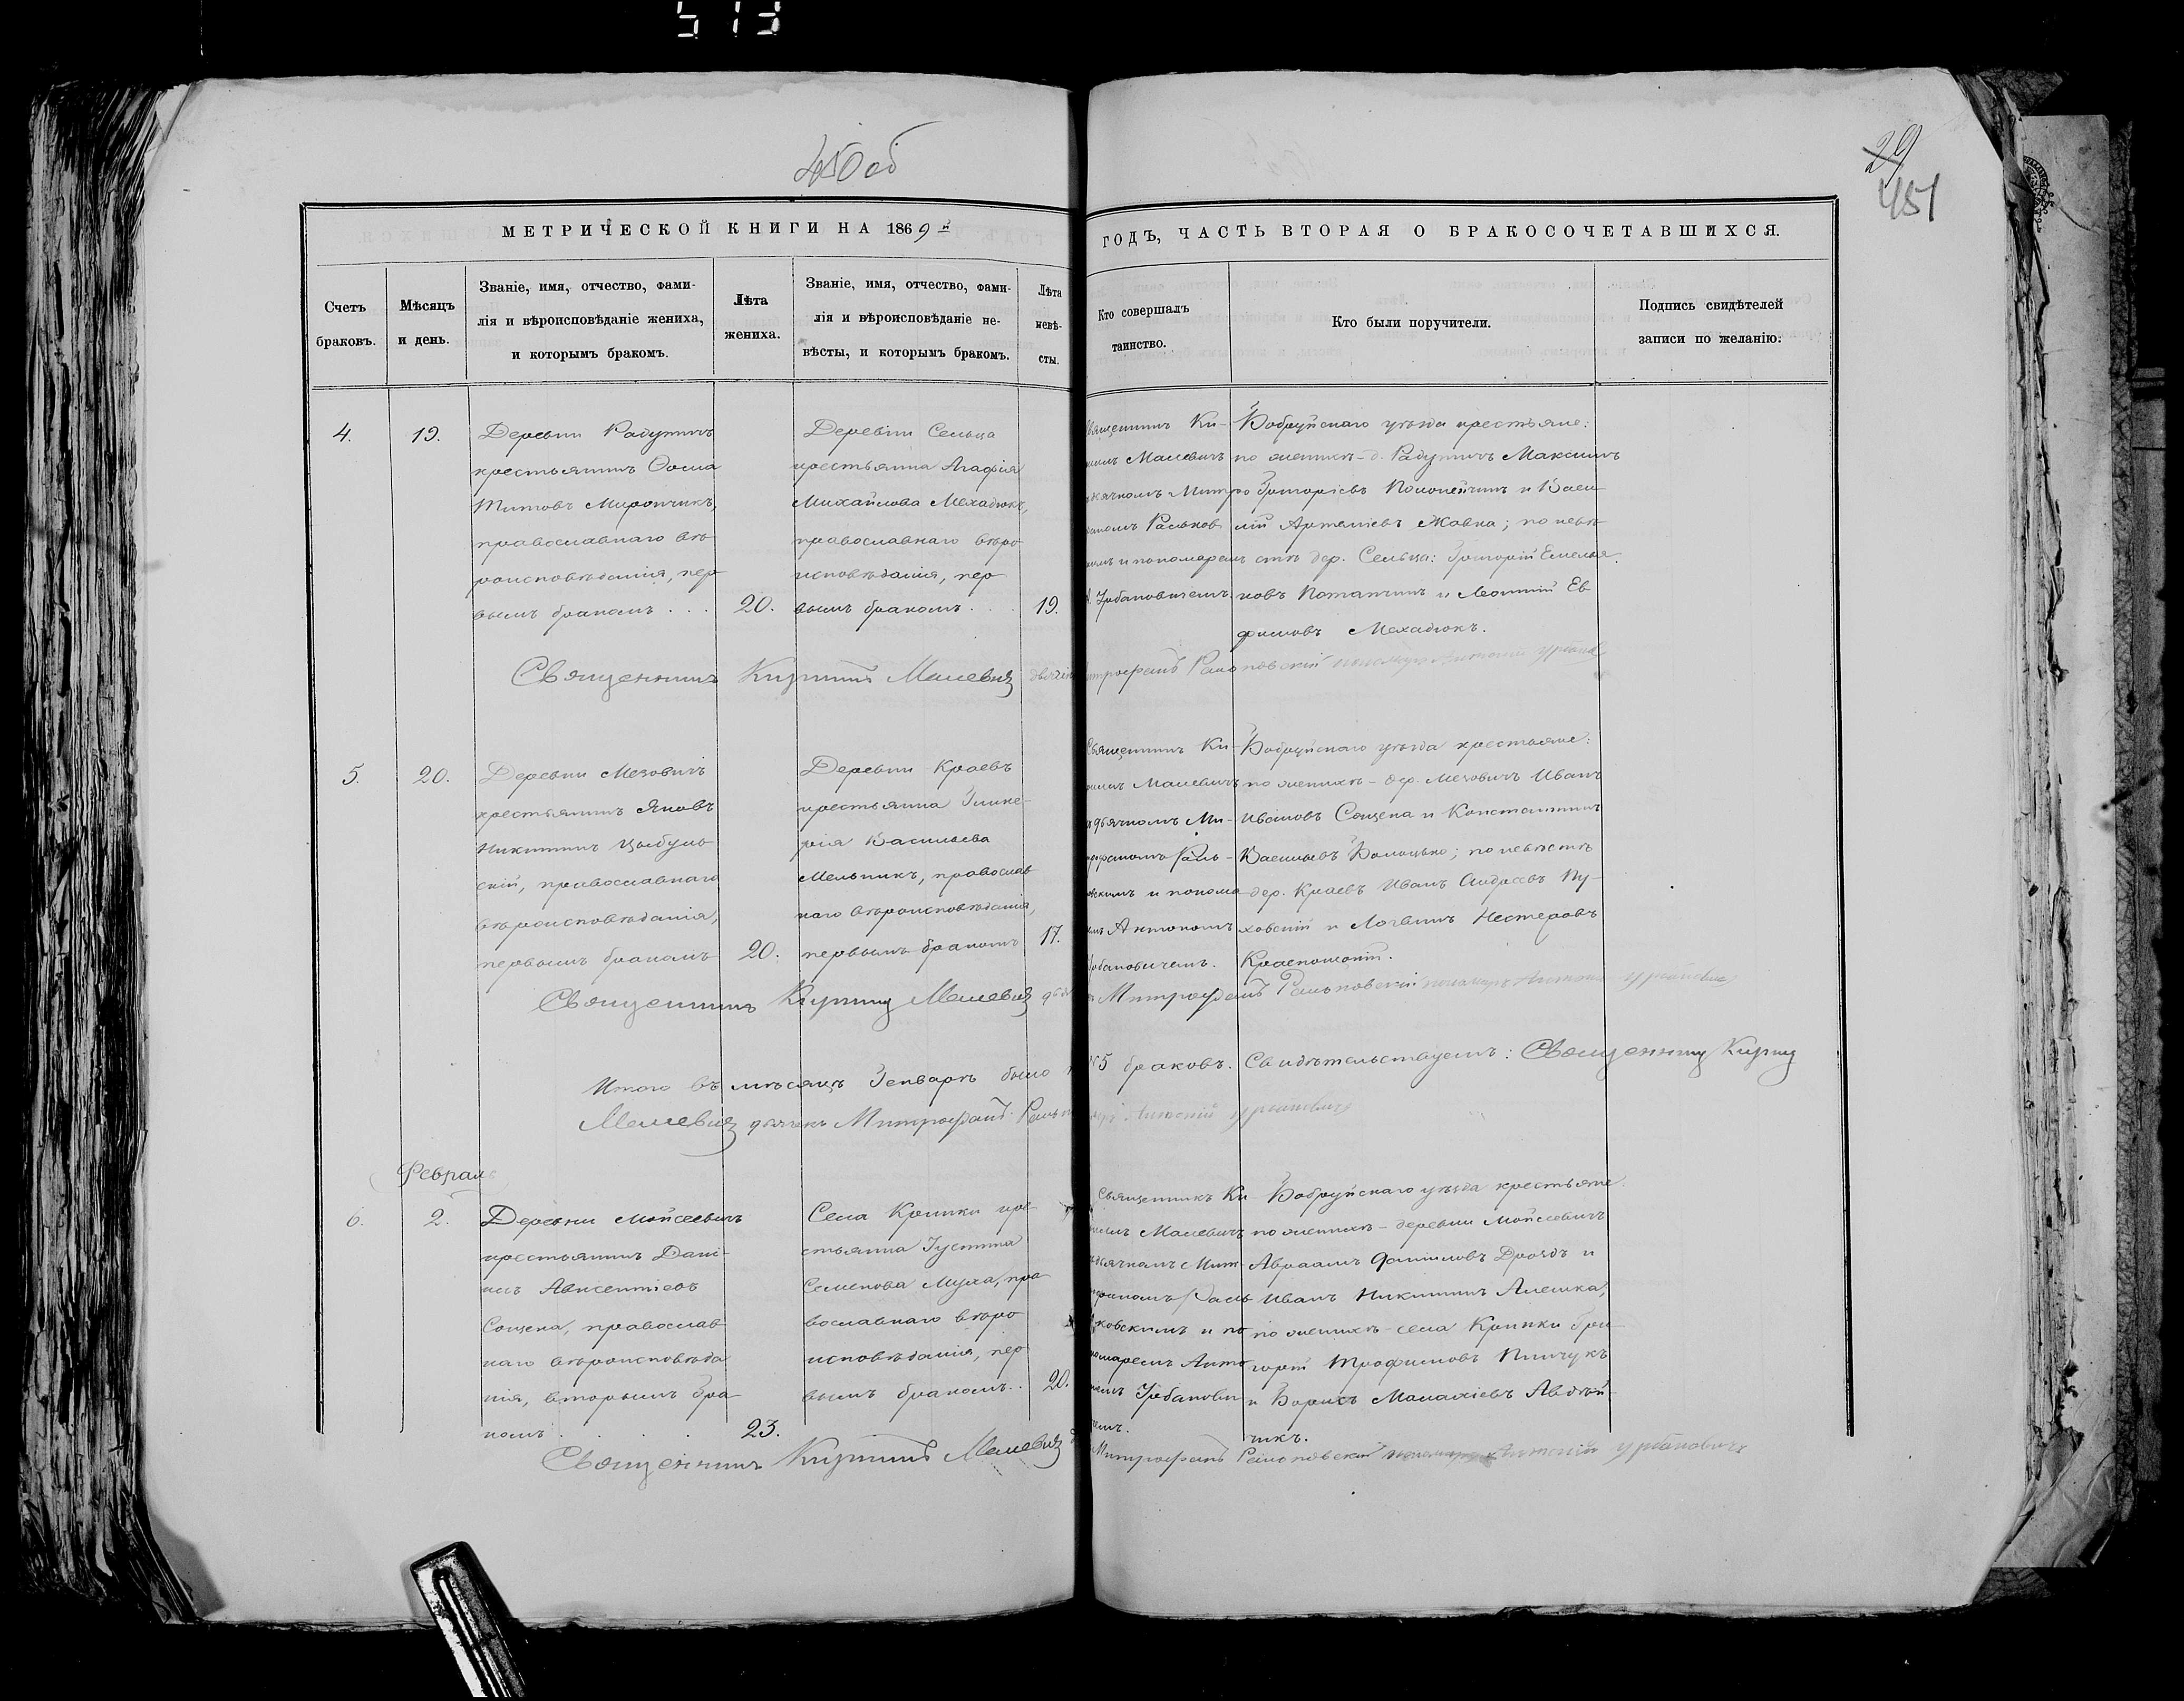 513
450 об
29
451
МЕТРИЧЕСКОЙ КНИГИ НА 1869 й
ГОДЪ, ЧАСТЬ ВТОРАЯ О БРАКОСОЧЕТАВШИХСЯ.
Счетъ
браковъ.
Мѣсяцъ
и день.
Званіе, имя, отчество, фами-
лія и вѣроисповѣданіе жениха,
и которымъ бракомъ.
Лѣта
жениха.
Званіе, имя, отчество, фами-
лія и вѣроисповѣданіе не-
вѣсты, и которымъ бракомъ.
Лѣта
невѣ-
сты.
Кто совершалъ
таинство.
Кто были поручители.
Подпись свидѣтелей
записи по желанію.
4.
19.
Деревни Радутичъ
крестьянинъ Ѳома
Титовъ Мирончикъ,
православнаго вѣ-
роисповѣданія, пер
вымъ бракомъ . . .
20.
Деревни Сельца
крестьянка Агафія
Михайлова Мехадюкъ,
православнаго вѣро
исповѣданія, пер
вымъ бракомъ . . .
19.
Священникъ Ки-
Малевичъ
Митро
и пономарем
Урбановичемъ.
Бобруйскаго уѣзда крестьяне:
по женихѣ - д. Радутичъ Максимъ
Григоріевъ и Васи
лій Артеміевъ Жовна; по невѣ
стѣ дер. Сельца: Григорій Емелья
новъ Потапчикъ и Леонтій Ев
фимовъ Мехадюкъ.
Священникъ Кириллъ Малевичъ
5.
20.
Деревни Мезовичъ
крестьянинъ Яковъ
Никитинъ Цыбуль
скій, православнаго
вѣроисповѣданія,
первымъ бракомъ
20.
Деревни Краевъ
крестьянка Глике-
рія Васильева
Мельникъ, православ
наго вѣроисповѣданія,
первымъ бракомъ
17.
Священникъ Ки-
Малевичъ
дьячкомъ Ми-
и понома
Антоном
Бобруйскаго уѣзда крестьяне:
по женихѣ - дер. Мезовичъ Иванъ
Ивановъ Сощека и Константинъ
Васильевъ; по невѣстѣ
дер. Краевъ Иванъ Андреевъ Пу-
ховскій и Логвинъ Нестеровъ
Священникъ Кириллъ Малевичъ
Митрофанъ
Итого въ мѣсяцѣ Генварѣ было
5 браковъ. Свидѣтельствуемъ: Священникъ Кириллъ
Малевичъ дьячекъ Митрофанъ
Антоній Урбановичъ
Февраль
6.
2.
Деревни Мойсеевичъ
крестьянинъ Дані-
илъ Авксентіевъ
Сощека, православ
наго вѣроисповѣда
нія, вторымъ бра
комъ . . .
23.
Села Кринки кре-
стьянка Густина
Семенова Муха, пра
вославнаго вѣро
исповѣданія, пер
вымъ бракомъ. .
20.
Священникъ Ки
Малевичъ
дьячкомъ Мит
ковскимъ и по
номаремъ Анто
Урбанови
чемъ.
Бобруйскаго уѣзда крестьяне
по женихѣ - деревни Мойсеевичъ
Авраамъ Даниловъ Дроздъ и
Иванъ Никитинъ Алешка,
по женихѣ - села Кринки Гри
горій Трофимовъ Пинчукъ
и Борисъ Малахіевъ Авдѣй
чикъ.
Священникъ Кириллъ Малевичъ
Митрофанъ пономарь Антоній Урбановичъ